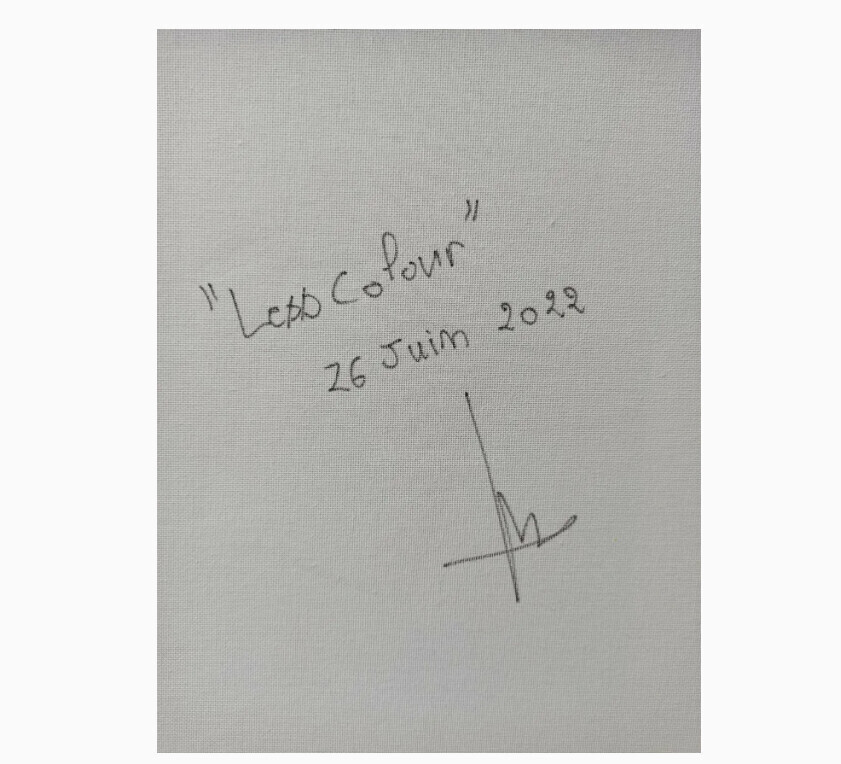 "Less Colour"
26 Juin 2022